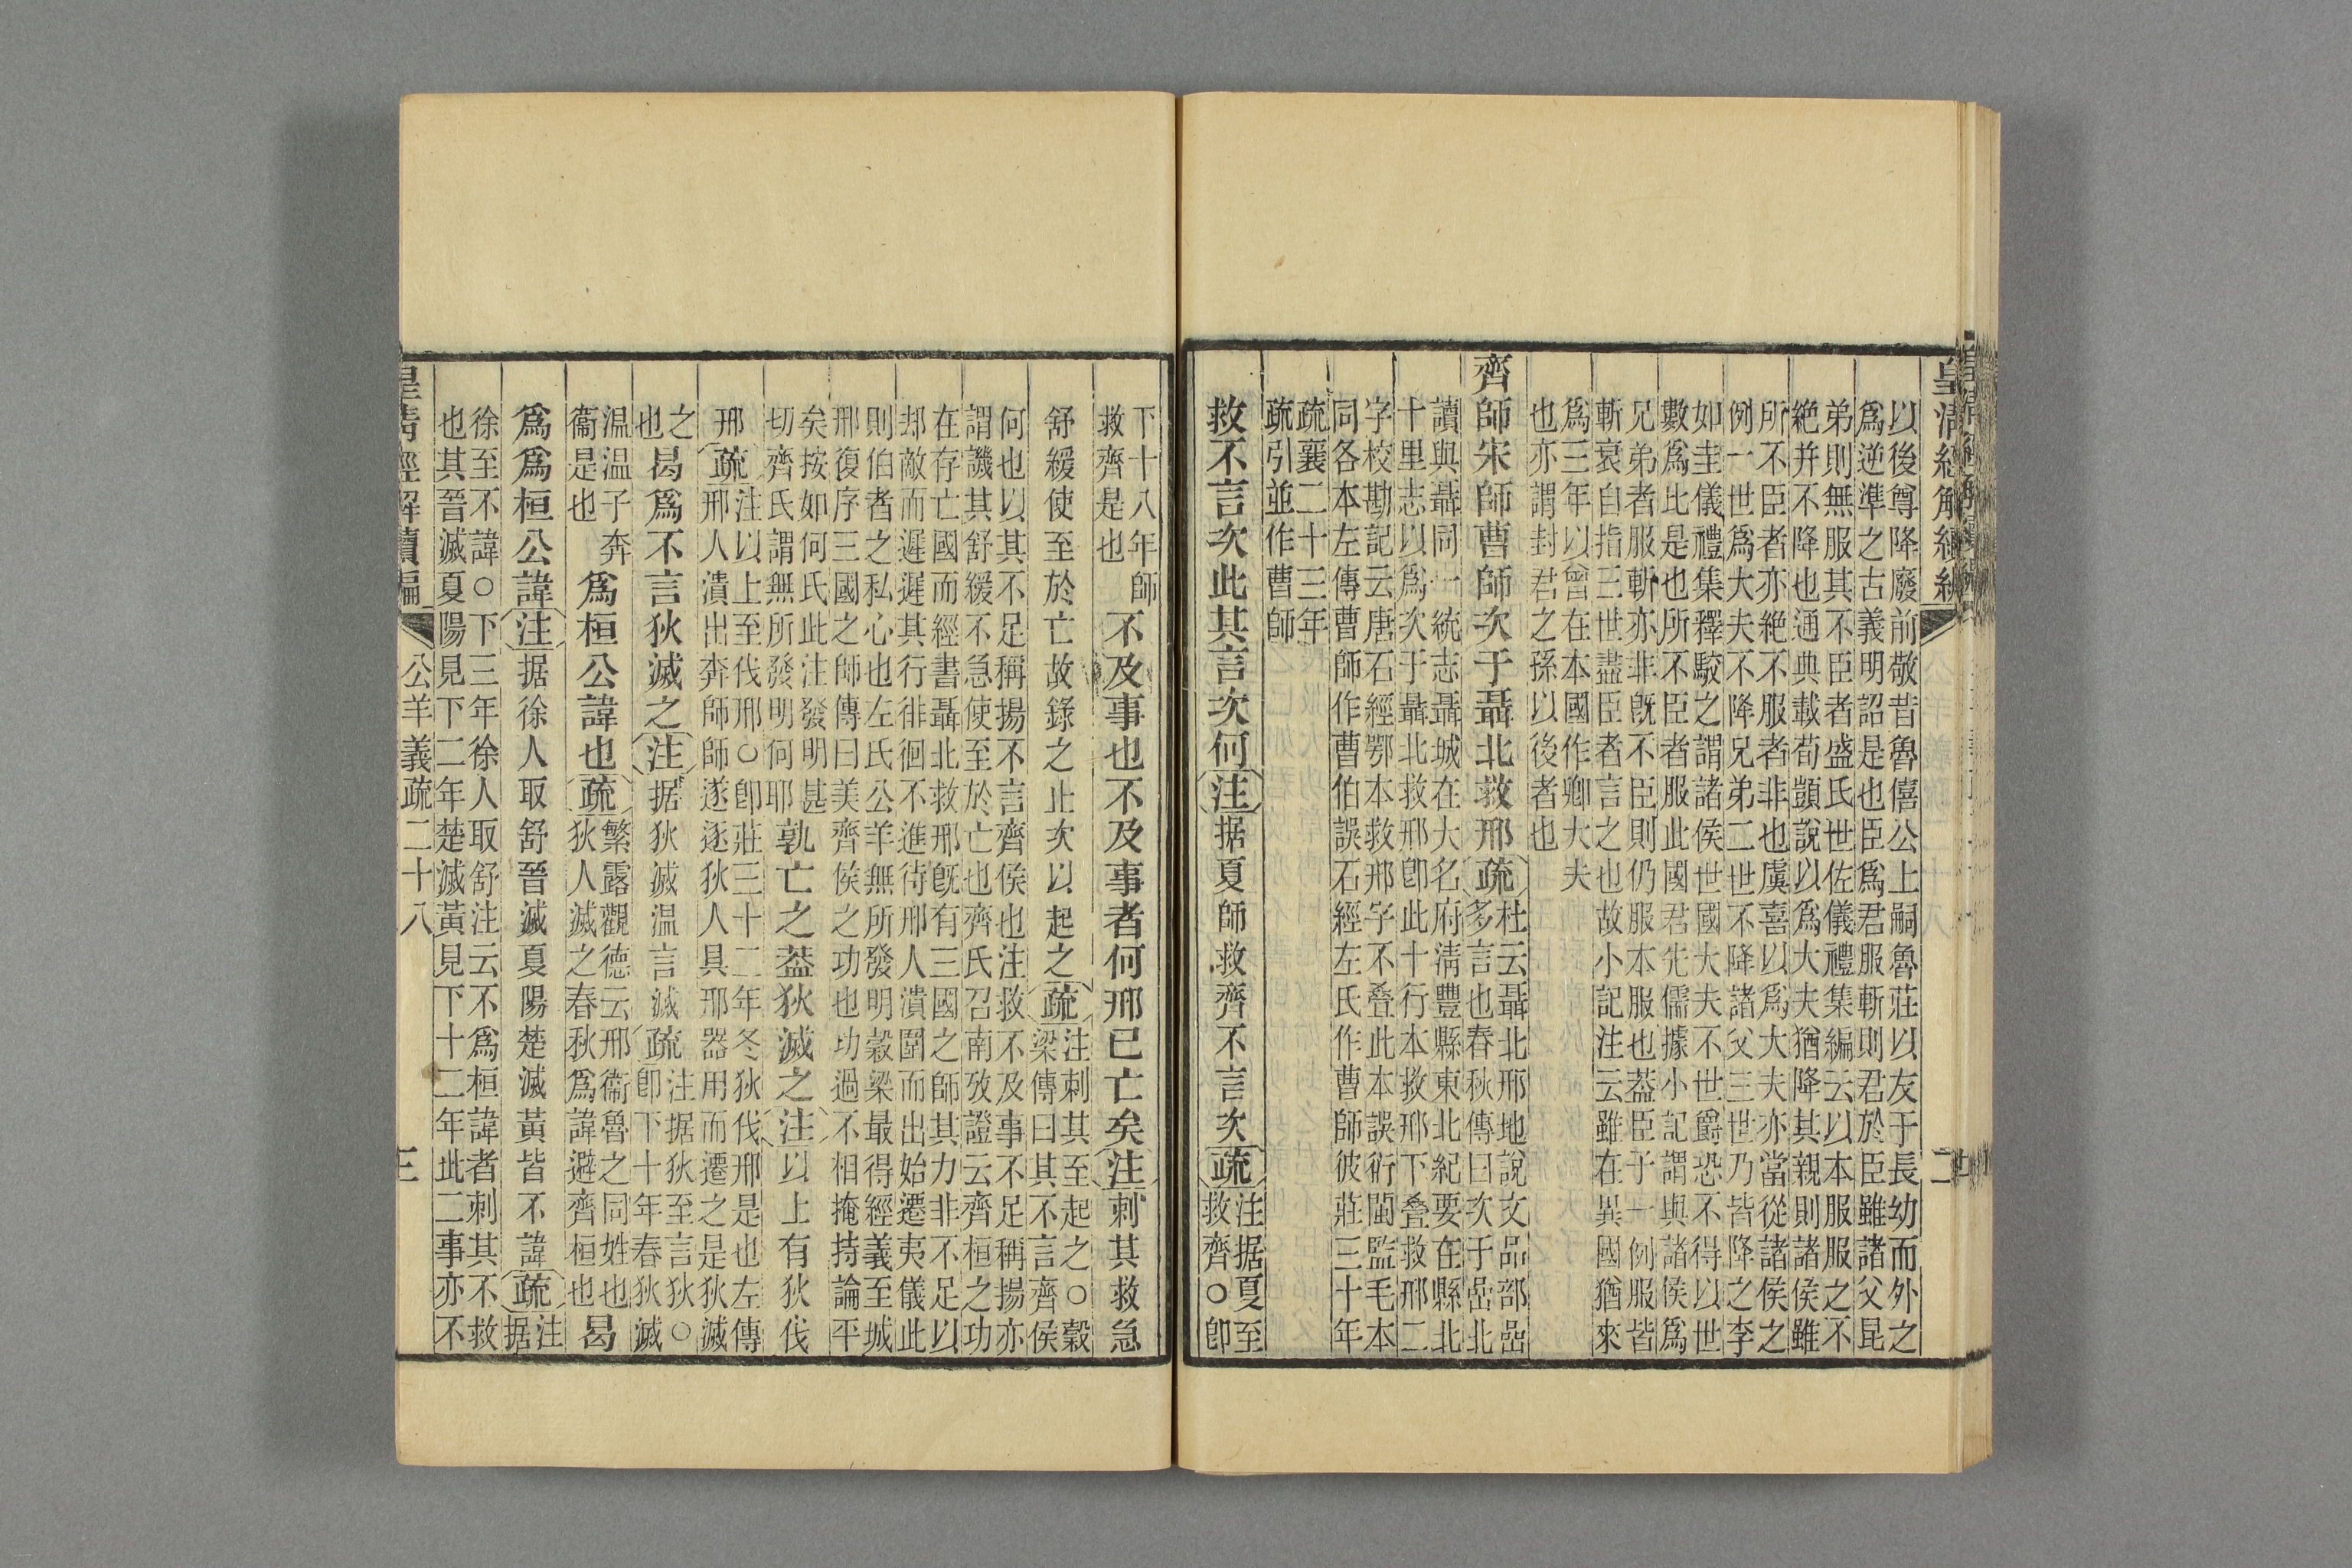 皇清經解續編
二
以後尊降廢前敬昔魯僖公上嗣魯莊以友于長幼而外之
爲逆準之古義明詔是也臣爲君服斬則君於臣雖諸父昆
弟則無服其不臣者盛氏世佐儀禮集編云以本服服之不
絶并不降也通典載荀顗說以爲大夫猶降其親則諸侯雖
所不臣者亦絶不服者非也虞喜以爲大夫亦當從諸侯之
例一世爲大夫不降兄弟二世不降諸父三世乃皆降之李
如圭儀禮集釋駮之謂諸侯世國大夫不世爵恐不得以世
數爲比是也所不臣者服此國君先儒據小記謂與諸侯爲
兄弟者服斬亦非旣不臣則仍服本服也葢臣子一例服皆
斬衰自指三世盡臣者言之也故小記注云雖在異國猶來
爲三年以曾在本國作卿大夫
也亦謂封君之孫以後者也
齊師宋師曹師次于聶北救邢疏
杜云聶北邢地說文品部嵒
多言也春秋傳曰次于嵒北
讀與聶同一統志聶城在大名府清豐縣東北紀要在縣北
十里志以爲次于聶北救邢卽此十行本救邢下叠救邢二
字校勘記云唐石經鄂本救邢字不叠此本誤衍閩監毛本
同各本左傳曹師作曹伯誤石經左氏作曹師彼莊三十年
疏襄二十三年
疏引並作曹師
救不言次此其言次何注据夏師救齊不言次疏
注据夏至
救齊○卽
下十八年師
救齊是也
不及事也不及事者何邢已亡矣注刺其救急
舒緩使至於亡故錄之止次以起之疏
注刺其至起之○穀
梁傳曰其不言齊侯
何也以其不足稱揚不言齊侯也注救不及事不足稱揚亦
謂譏其舒緩不急使至於亡也齊氏召南攷證云齊桓之功
在存亡國而經書聶北救邢旣有三國之師其力非不足以
却敵而遲遲其行徘徊不進待邢人潰圍而出始遷夷儀此
則伯者之私心也左氏公羊無所發明穀梁最得經義至城
邢復序三國之師傳曰美齊侯之功也功過不相掩持論平
矣按如何氏此注發明甚
切齊氏謂無所發明何耶
孰亡之葢狄滅之注以上有狄伐
邢疏
注以上至伐邢○卽莊三十二年冬狄伐邢是也左傳
邢人潰出奔師師遂逐狄人具邢器用而遷之是狄滅
之
也
曷爲不言狄滅之注据狄滅温言滅疏
注据狄至言狄○
卽下十年春狄滅
温温子奔
衞是也
爲桓公諱也疏
繁露觀德云邢衞魯之同姓也
狄人滅之春秋爲諱避齊桓也
曷
爲爲桓公諱注据徐人取舒晉滅夏陽楚滅黃皆不諱疏
注
据
徐至不諱○下三年徐人取舒注云不爲桓諱者刺其不救
也其晉滅夏陽見下二年楚滅黃見下十二年此二事亦不
皇清經解續編
公羊義疏二十八
三